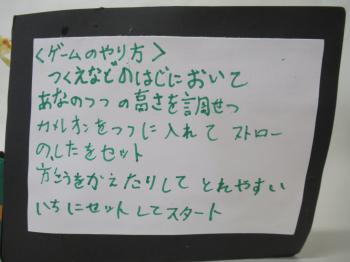 <ゲームのやり方>
つくえなどのはじにおいて
あなのつつの高さを調せつ
カメレオンをつつに入れて ストロー
のしたをセット
方こうをかえたりして とれやすい
いちにセットしてスタート